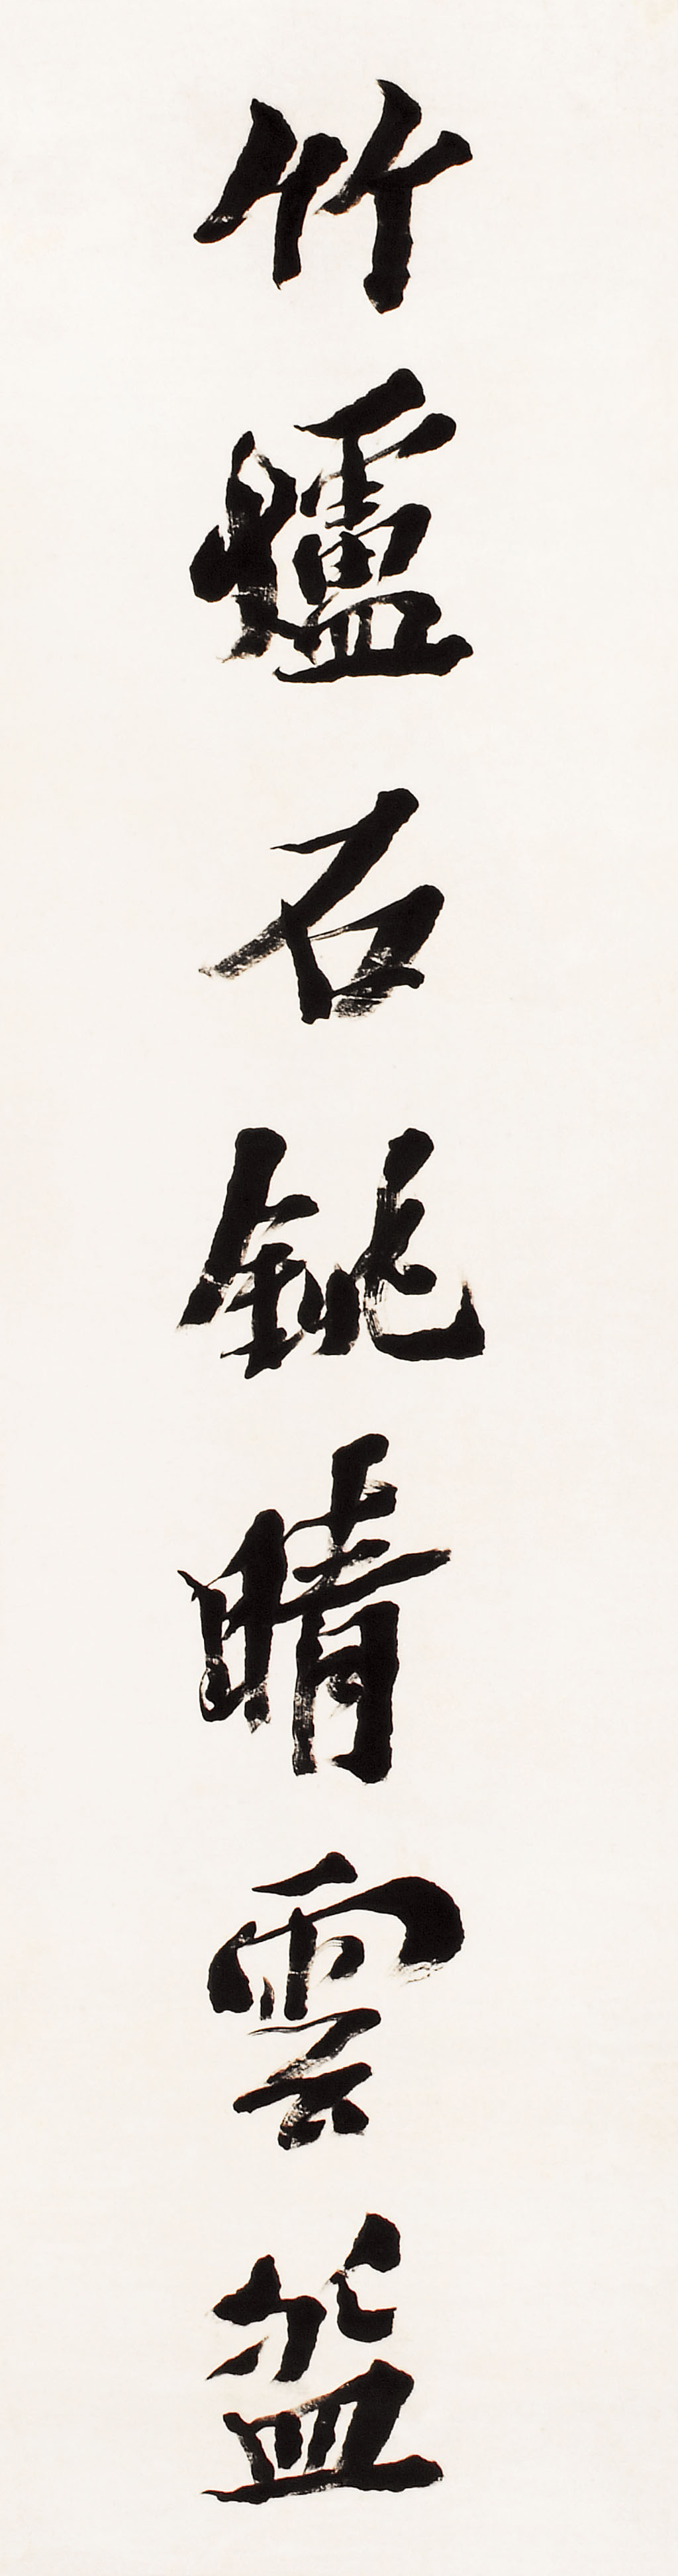 竹爐石銚晴雲盌